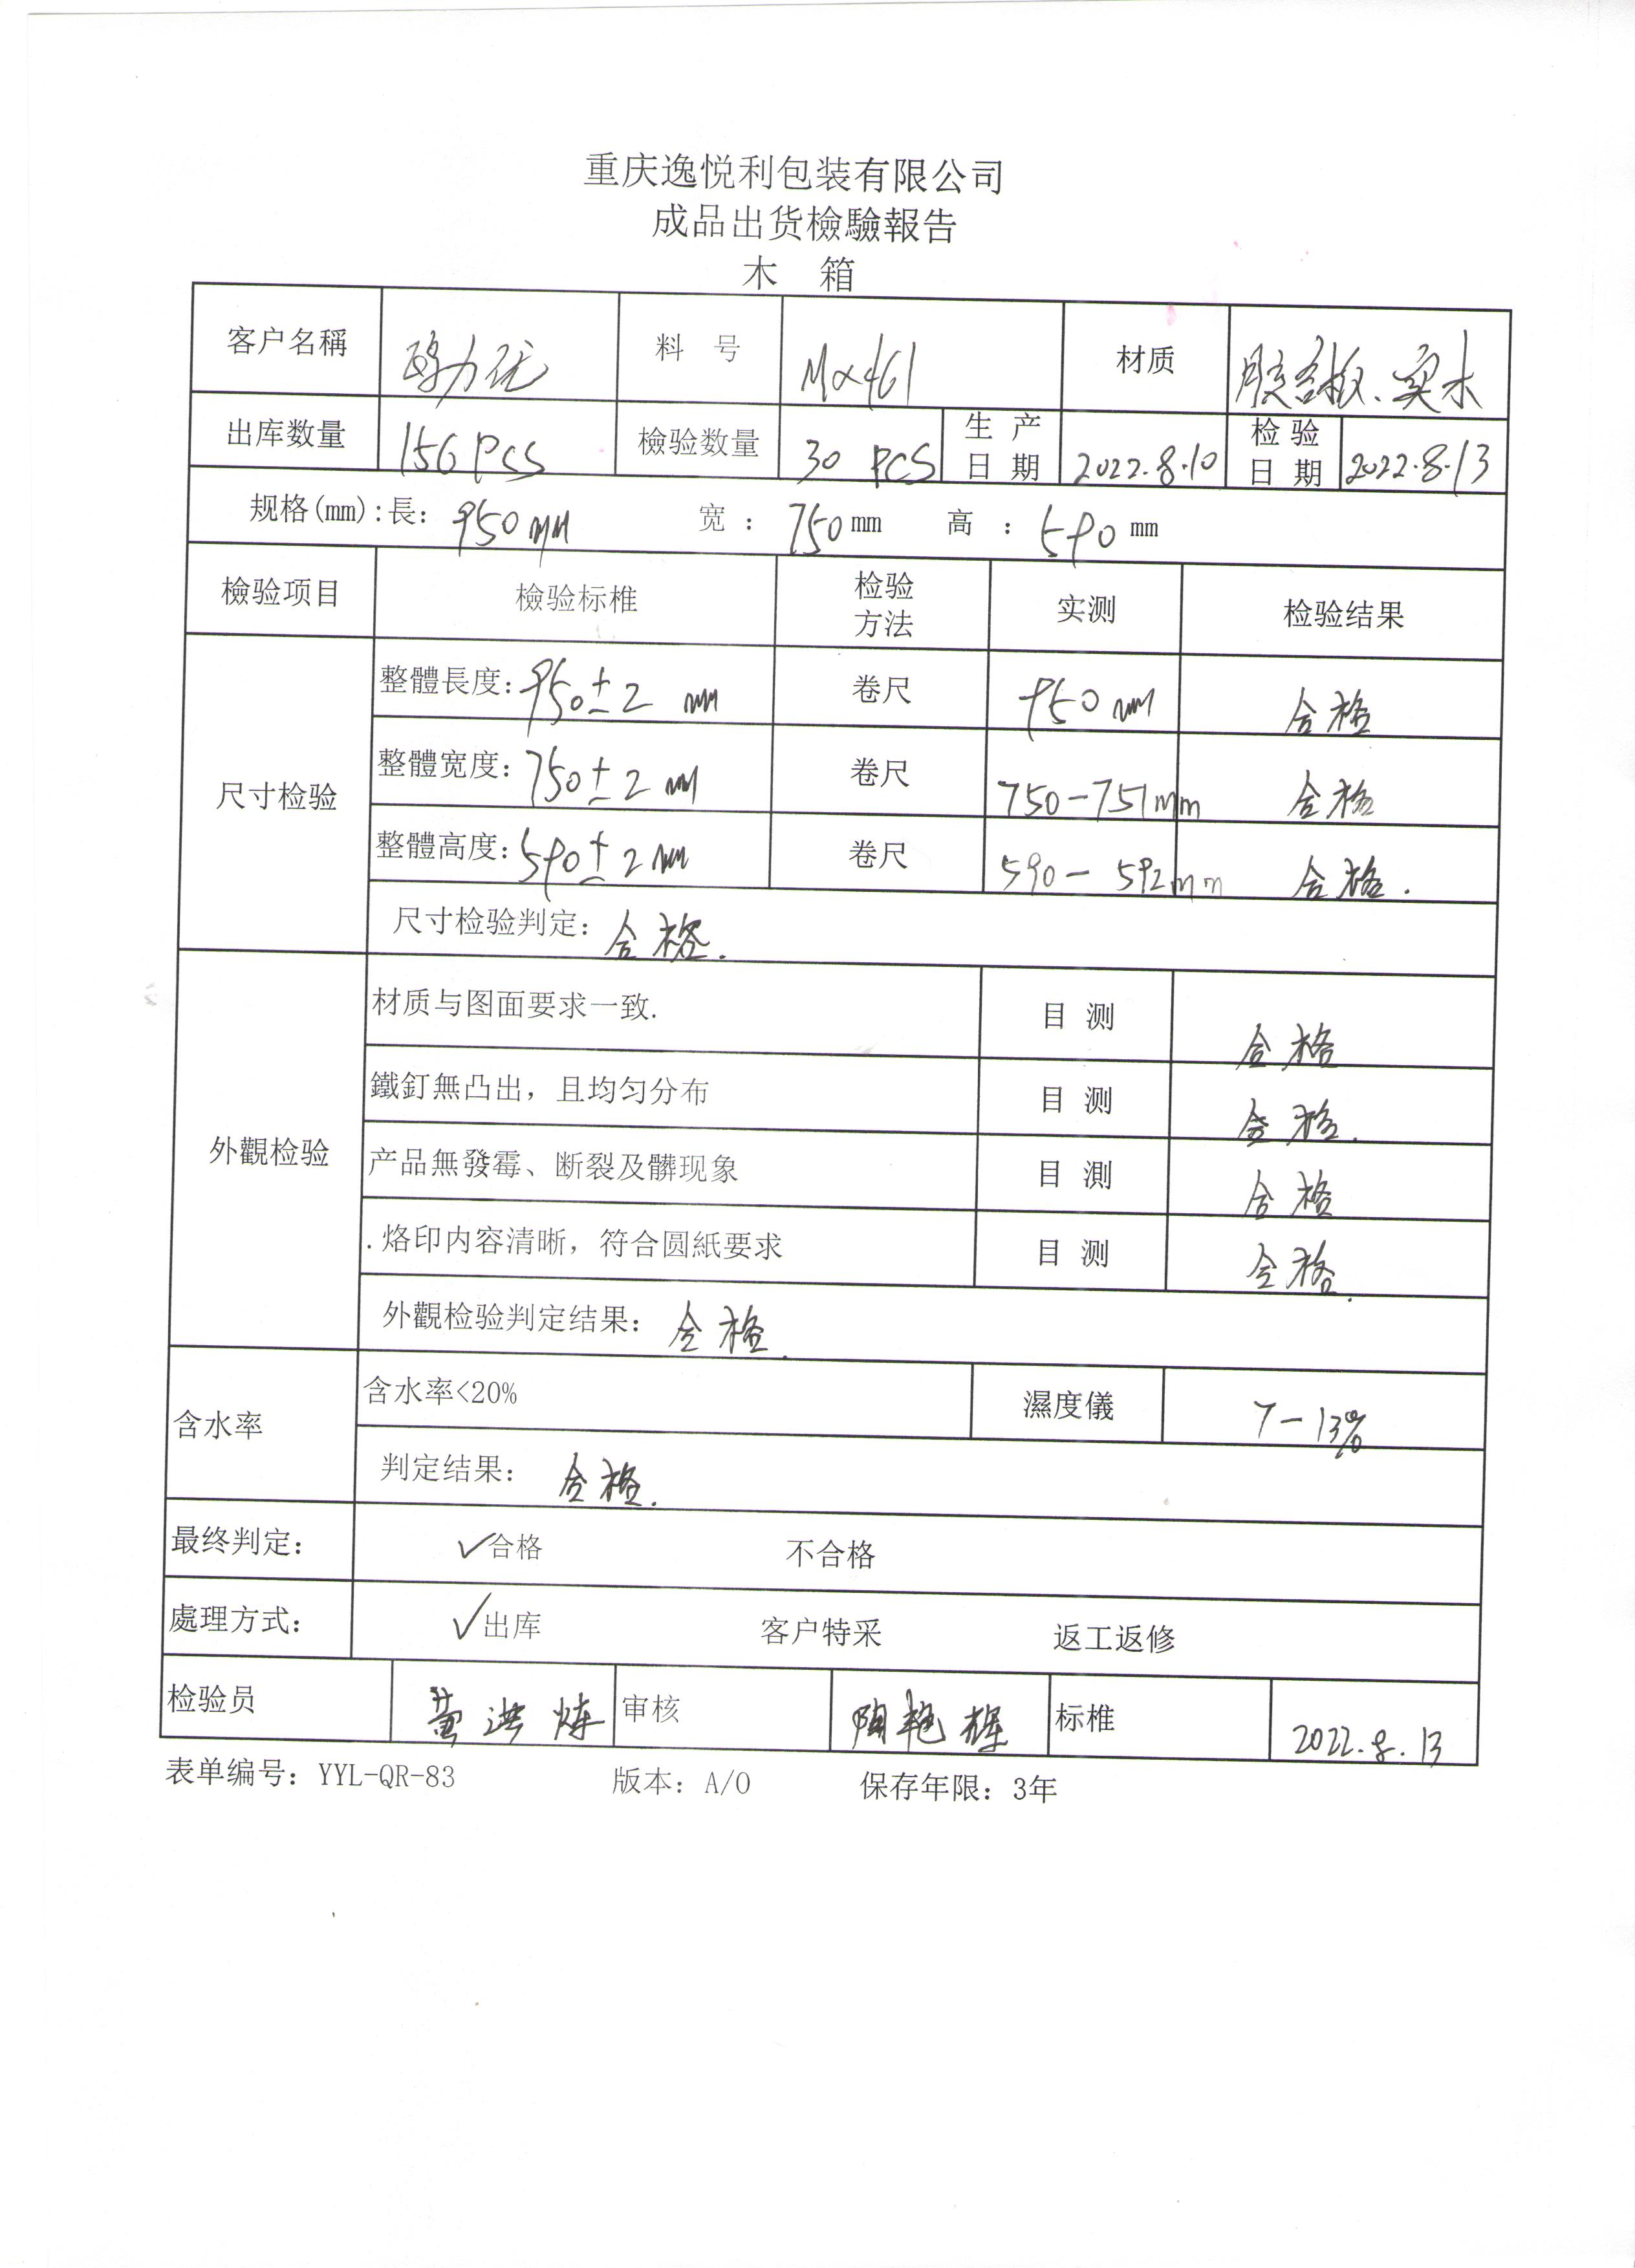 重庆逸悦利包装有限公司
成品出货檢驗報告
木 箱
客户名稱 力优 料 号 MX461 材质 胶合板、实木
出库数量 156 PCS 檢验数量 30 PCS 生产日期 2022.8.10 检验日期 2022.8.13
规格(mm):長: 950mm 宽: 750mm 高: 590mm
檢验项目 檢验标椎 检验方法 实测 检验结果
尺寸检验
整體長度: 950±2 mm 卷尺 950mm 合格
整體宽度: 750±2 mm 卷尺 750-751mm 合格
整體高度: 590±2mm 卷尺 590-592mm 合格.
尺寸检验判定: 合格.
外觀检验
材质与图面要求一致. 目 测 合格
鐵釘無凸出，且均匀分布 目 测 合格.
产品無發霉、断裂及髒现象 目 測 合格
.烙印内容清晰，符合圆紙要求 目 测 合格.
外觀检验判定结果: 合格.
含水率
含水率<20% 濕度儀 7-13%
判定结果: 合格.
最终判定: ✓合格 不合格
處理方式: ✓出库 客户特采 返工返修
检验员 审核 标椎 2022.8.13
表单编号: YYL-QR-83 版本: A/0 保存年限: 3年